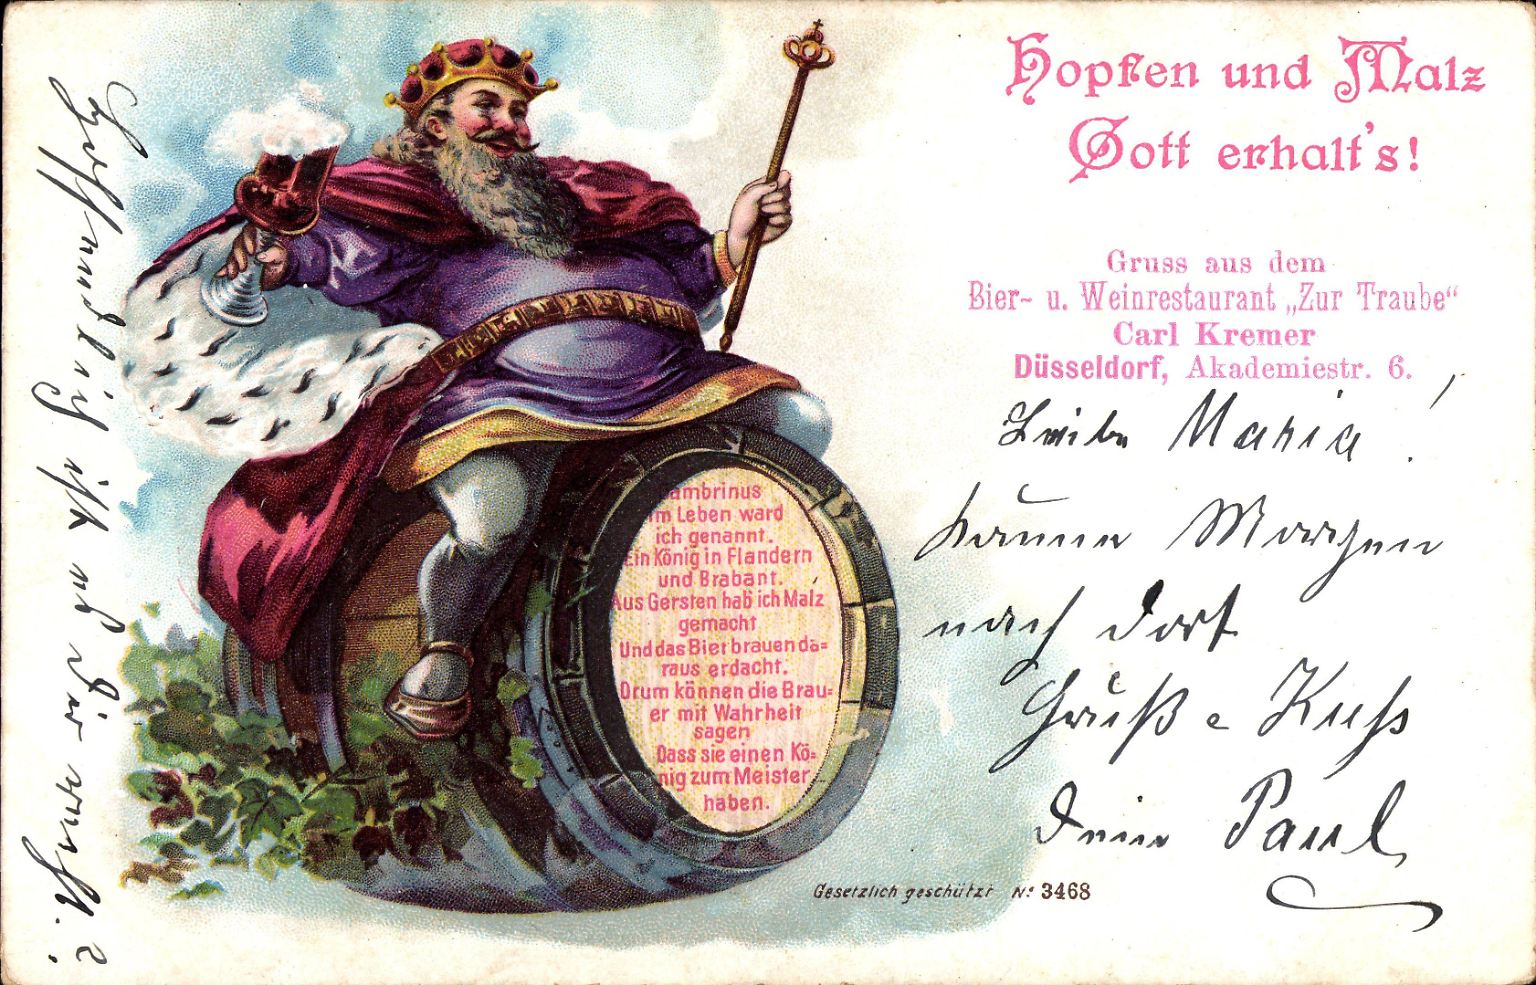 Hopfen und Malz
Gott erhalt's!
Gruss aus dem
Bier- u. Weinrestaurant „Zur Traube“
Carl Kremer
Düsseldorf, Akademiestr. 6.
Liebe Maria!
komme Morgen
nach dort
Gruß e Kuß
Dein Paul
ambrinus
im Leben ward
ich genannt.
Ein König in Flandern
und Brabant.
Aus Gersten hab ich Malz
gemacht
Und das Bierbrauen da=
raus erdacht.
Drum können die Brau=
er mit Wahrheit
sagen
Dass sie einen Kö=
nig zum Meister
haben.
Gesetzlich geschützt No 3468
Hoffendlich ist es dir recht.?